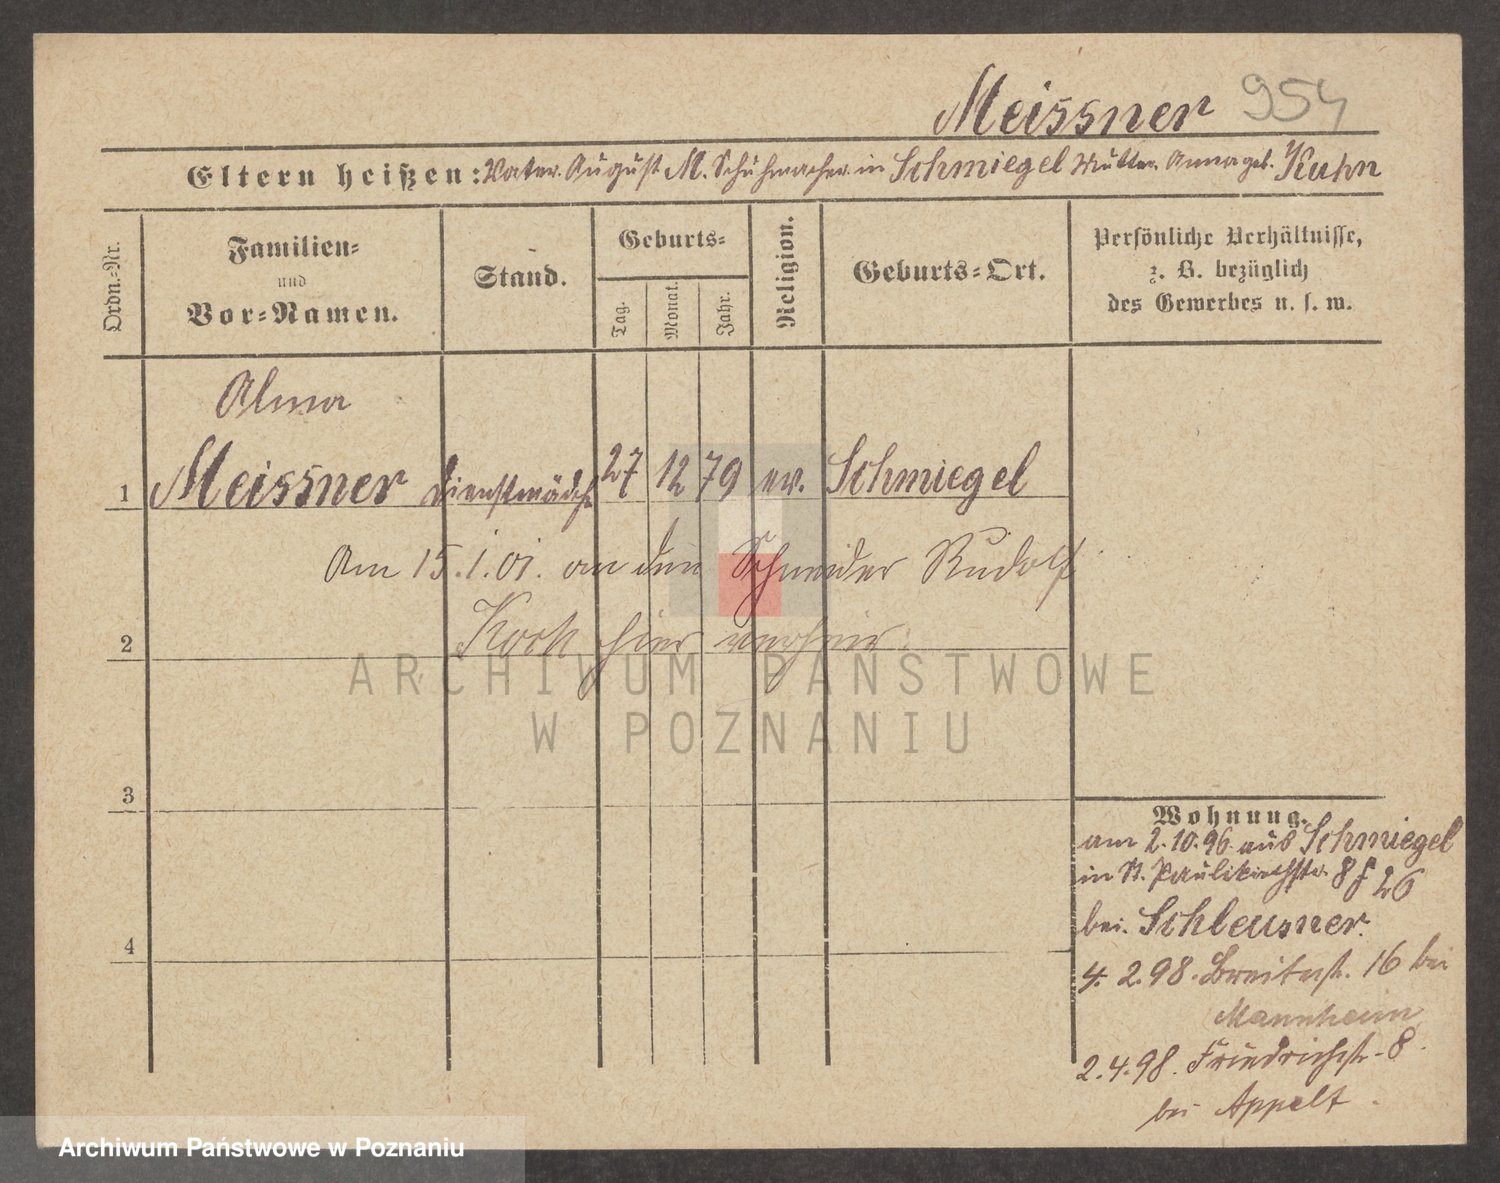 Meissner 954
Eltern heißen: Vater August M. Schuhmacher in Schmiegel Mutter Anna geb. Kuhn
Ordn.-Nr.
Familien-
und
Vor-Namen.
Stand.
Geburts-
Tag.
Monat.
Jahr.
Religion.
Geburts-Ort.
Persönliche Verhältnisse,
z. B. bezüglich
des Gewerbes u. s. w.
Alma
1 Meissner Dienstmädch. 27 12 79 ev. Schmiegel
Am 15.1.01. an den Schneider Rudolf
2 hier verheir.
ARCHIWUM PAŃSTWOWE
W POZNANIU
3
4
Wohnung.
am 2.10.96. aus Schmiegel
in St. Paulikirchstr. 8
bei Schleusner.
4. 2. 98. Breitestr. 16 bei
Mannheim
2. 4. 98. Friedrichstr. 8
bei Appelt.
Archiwum Państwowe w Poznaniu